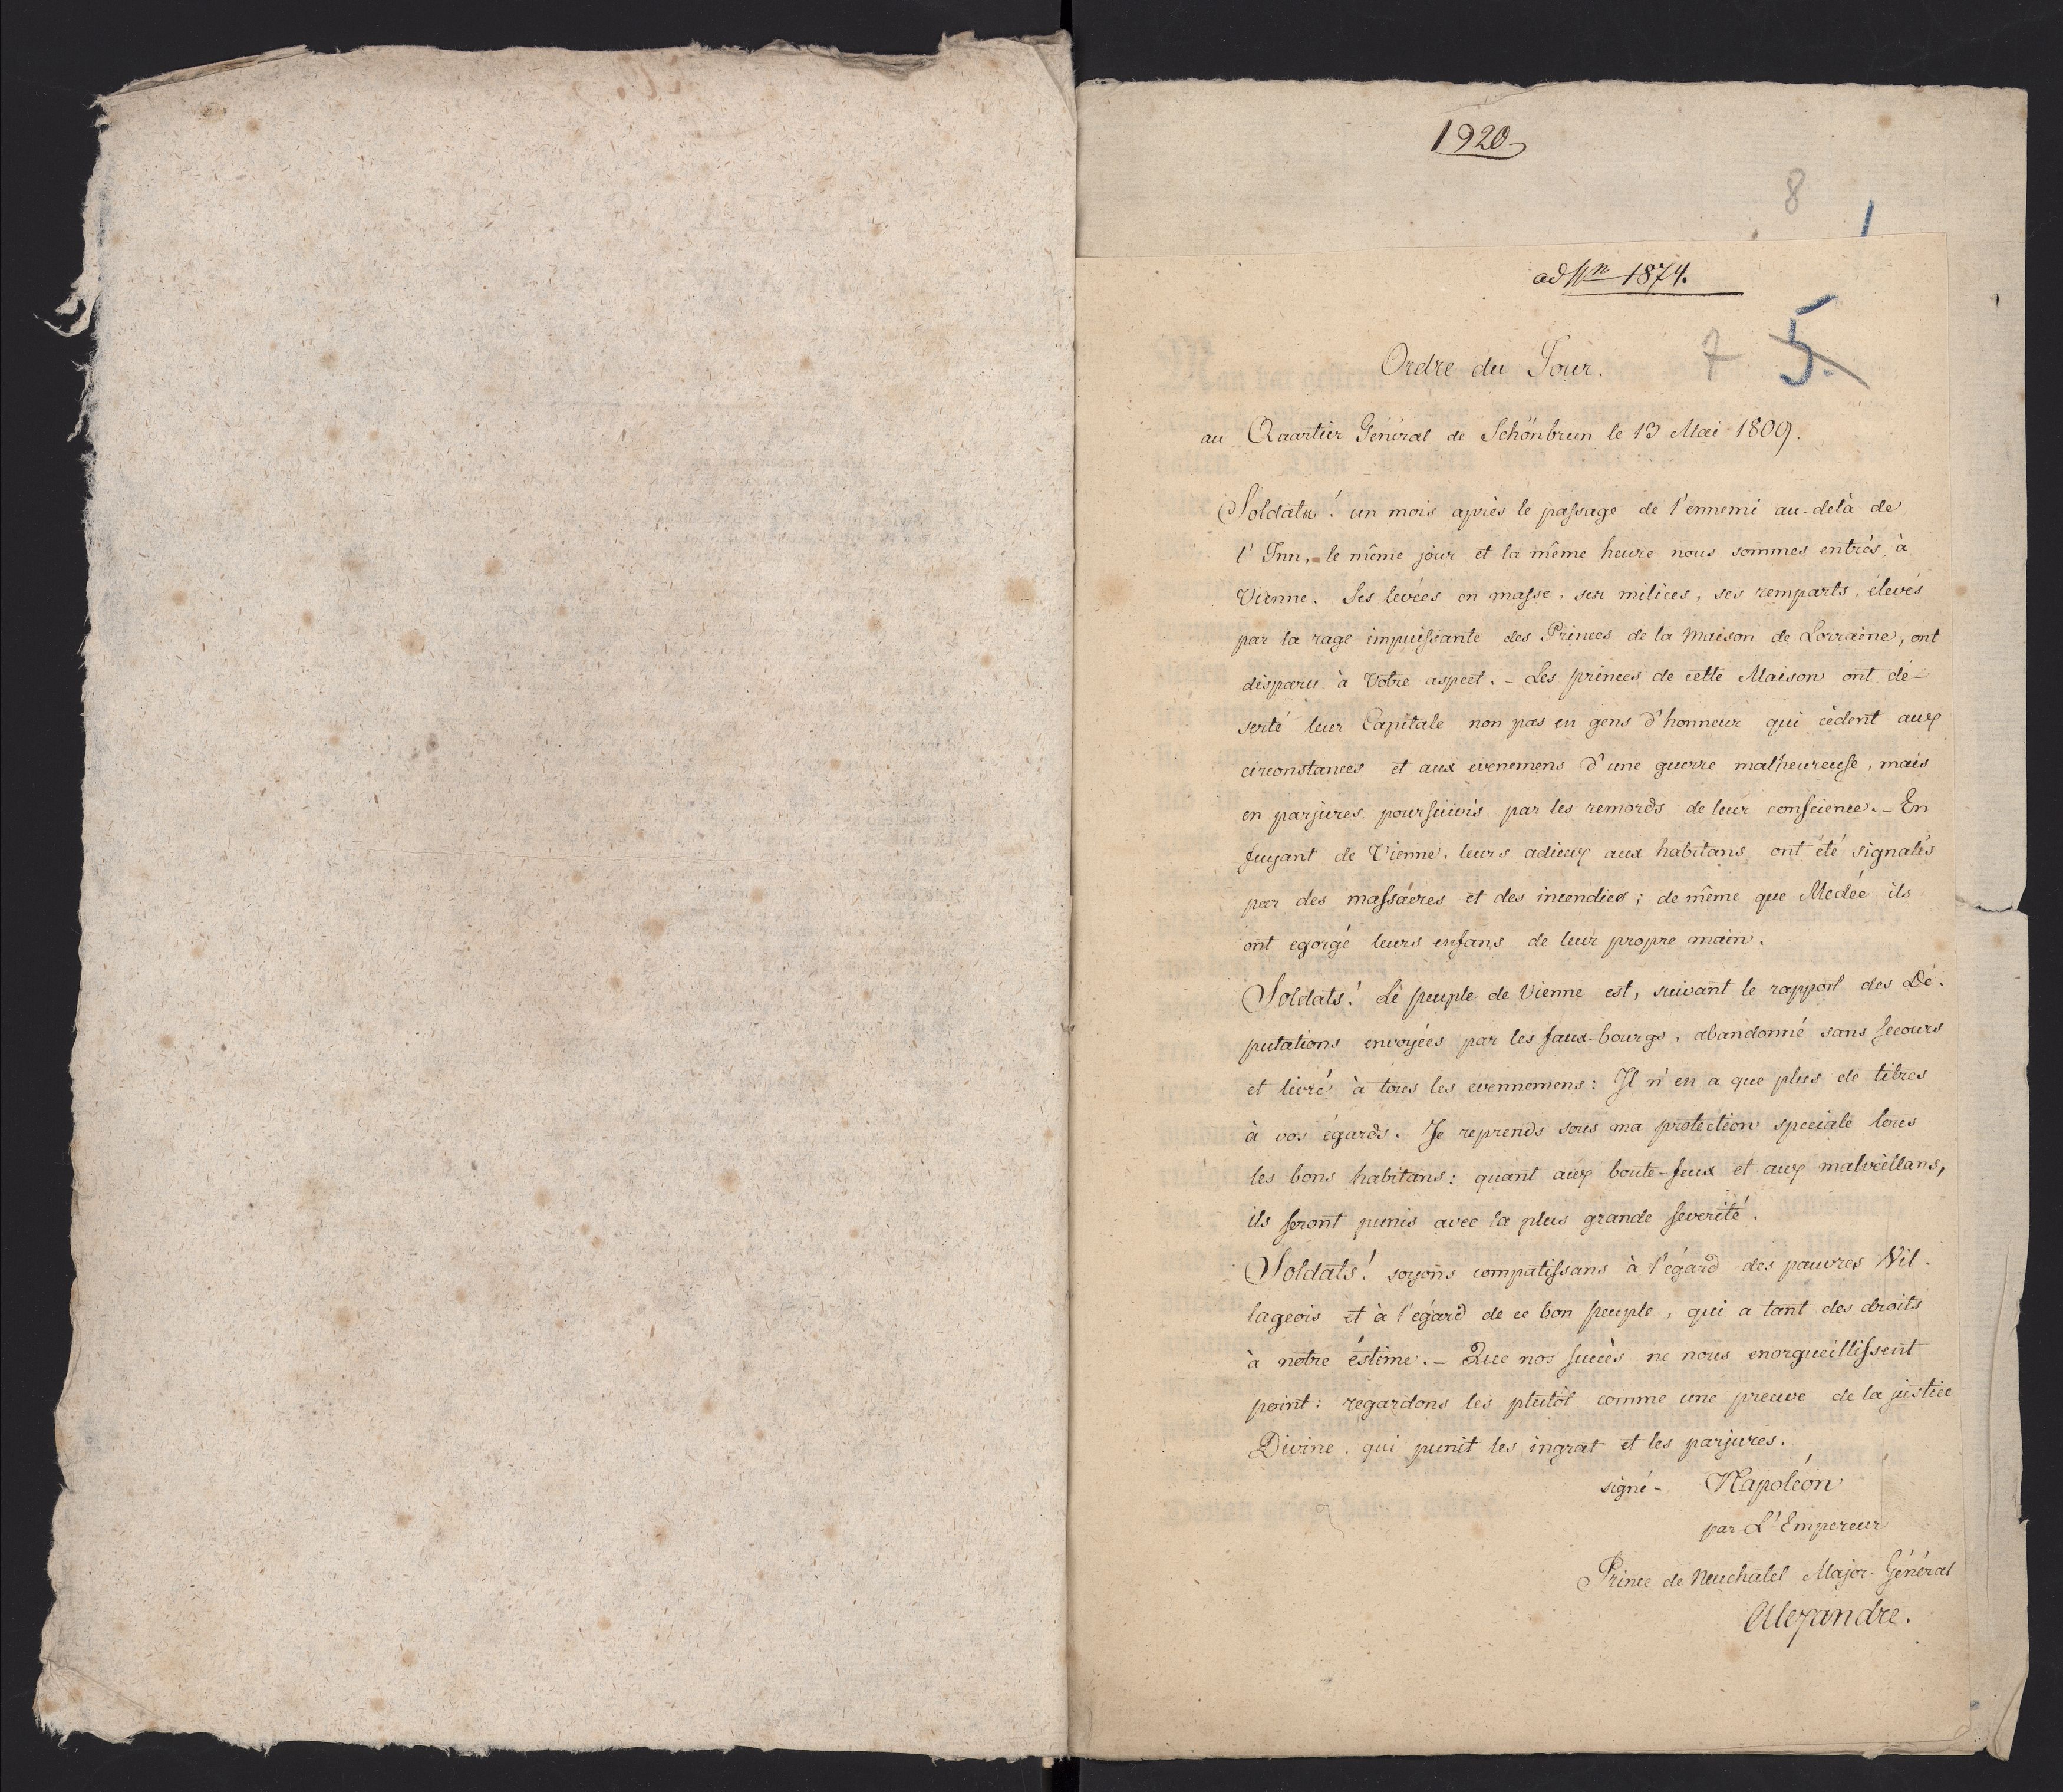 1920
8
1
ad Nrn 1874.
Ordre du Jour.
7 5.
au Quartier Général de Schönbrun le 13 Mai 1809.
Soldats! un mois après le paſsage de l'ennemi au-delà de
l'Inn, le même jour et la même heure nous sommes entrés à
Vienne. Ses levées en maſse, ses milices, ses remparts, élevés
par la rage impuiſsante des Princes de la Maison de Lorraine, ont
disparu à Votre aspect. - Les princes de cette Maison ont dé-
serté leur Capitale non pas en gens d'honneur qui cèdent aux
circonstances et aux evenemens d'une guerre malheureuſe, mais
en parjures pourſuivis par les remords de leur conſcience. - En
fuyant de Vienne, leurs adieux aux habitans ont été signalés
par des maſsacres et des incendies; de même que Medée ils
ont egorgé leurs enfans de leur propre main.
Soldats! Le peuple de Vienne est, suivant le rapport des Dé-
putations envoyées par les faux-bourgs, abandonné sans ſecours
et livré à tous les evennemens: Il n'en a que plus de titres
à vos égards. Je reprends sous ma protection speciale tous
les bons habitans: quant aux boute-feux et aux malveillans,
ils ſeront punis avec la plus grande ſeverité.
Soldats! soyons compatiſsans à l'égard des pauvres Vil-
lageois et à l'égard de ce bon peuple, qui a tant des droits
à nôtre éstime. - Que nos ſuccès ne nous enorgueilliſsent
point: regardons les plutôt comme une preuve de la justice
Divine, qui punit les ingrat et les parjures.
signé - Napoléon
par L'Empereur
Prince de Neuchatel Major-Général
Alexandre.